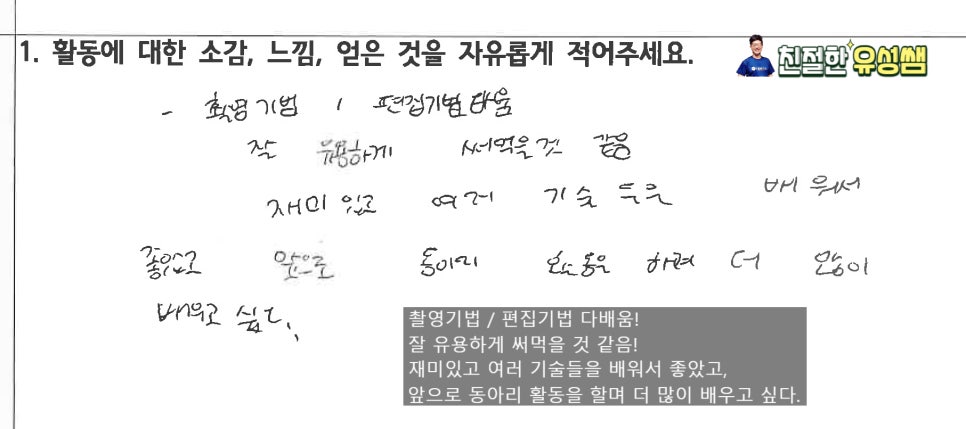 1. 활동에 대한 소감, 느낌, 얻은 것을 자유롭게 적어주세요.
친절한 유성쌤
- 촬영기법 / 편집기법 다배움
잘 유용하게 써먹을것 같음
재미있고 여러 기술들을 배워서
좋았고 앞으로 동아리 활동을 하며 더 많이
배우고 싶다.
촬영기법 / 편집기법 다배움!
잘 유용하게 써먹을 것 같음!
재미있고 여러 기술들을 배워서 좋았고,
앞으로 동아리 활동을 할며 더 많이 배우고 싶다.